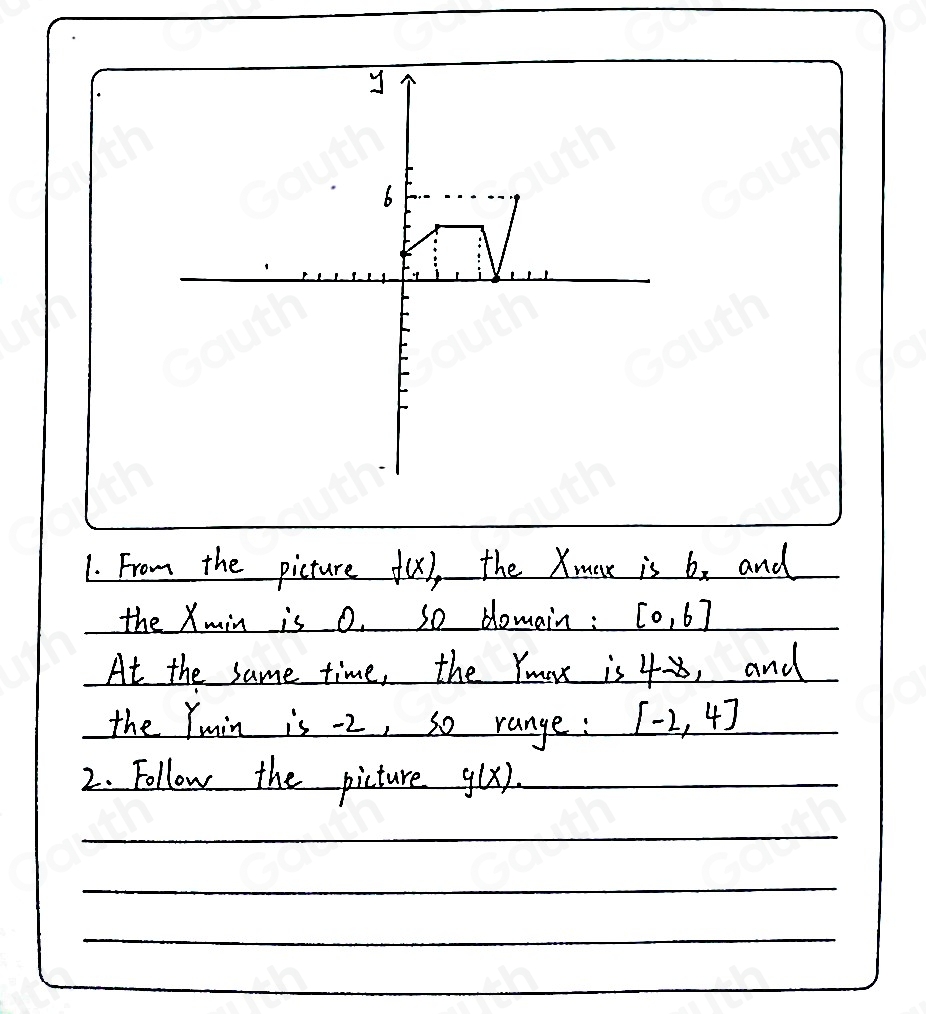 y
6
1. From the picture f(x), the Xmax is 6, and
the Xmin is 0. so domain: [0,6]
At the same time, the Ymax is 4, and
the Ymin is -2, so range: [-2, 4]
2. Follow the picture g(x).
Gauth